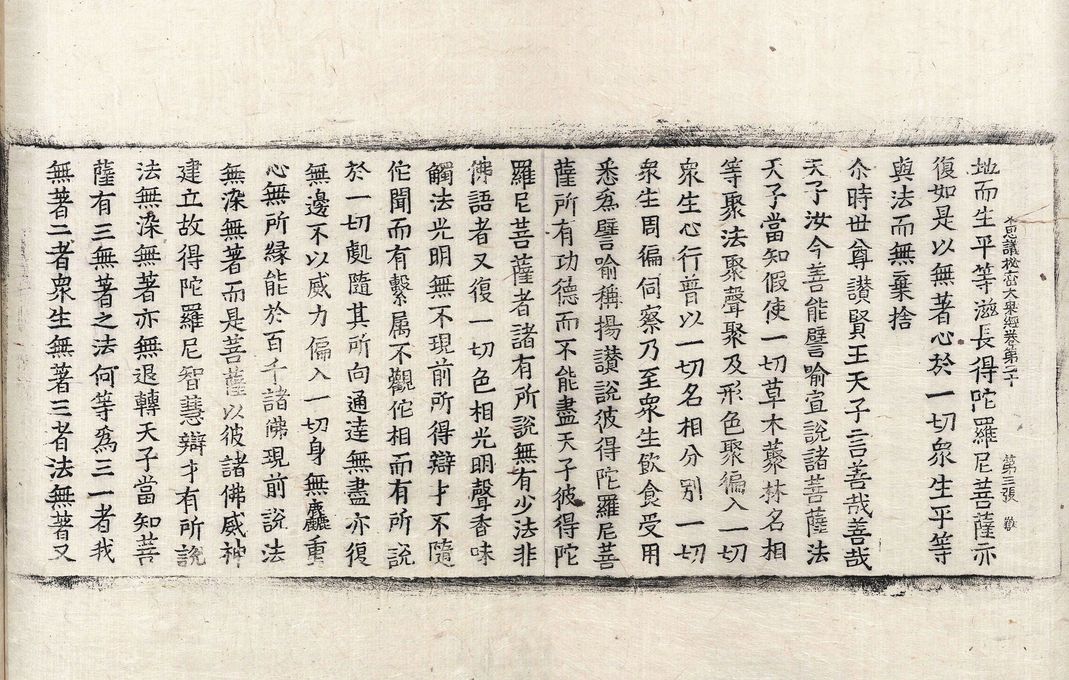 不思議秘密大乘經卷第二十 第三張 敢
地而生平等滋長得陀羅尼菩薩亦
復如是以無著心於一切衆生平等
與法而無棄捨
尒時世尊讃賢王天子言善哉善哉
天子汝今善能譬喻宣說諸菩薩法
天子當知假使一切草木䕺林名相
等聚法聚聲聚及形色聚徧入一切
衆生心行普以一切名相分別一切
衆生周徧伺察乃至衆生飲食受用
悉爲譬喻稱揚讃說彼得陀羅尼菩
薩所有功德而不能盡天子彼得陀
羅尼菩薩者諸有所說無有少法非
佛語者又復一切色相光明聲香味
觸法光明無不現前所得辯才不隨
佗聞而有繫属不觀佗相而有所說
於一切處隨其所向通達無盡亦復
無邊不以威力徧入一切身無麤重
心無所縁能於百千諸佛現前說法
無染無著而是菩薩以彼諸佛威神
建立故得陀羅尼智慧辯才有所說
法無染無著亦無退轉天子當知菩
薩有三無著之法何等爲三一者我
無著二者衆生無著三者法無著又